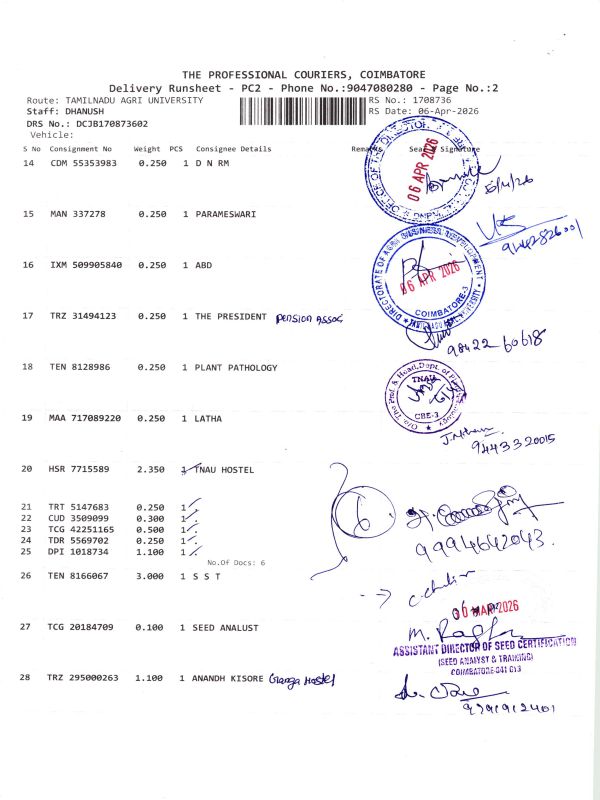 THE PROFESSIONAL COURIERS, COIMBATORE
Delivery Runsheet - PC2 - Phone No.:9047080280 - Page No.:2
Route: TAMILNADU AGRI UNIVERSITY RS No.: 1708736
Staff: DHANUSH RS Date: 06-Apr-2026
DRS No.: DCJB170873602
Vehicle:
S No Consignment No Weight PCS Consignee Details Remarks Seal & Signature
14 CDM 55353983 0.250 1 D N RM
06 APR 2026
15 MAN 337278 0.250 1 PARAMESWARI
9442826001
16 IXM 509905840 0.250 1 ABD
DIRECTORATE OF AGRI BUSINESS DEVELOPMENT
06 APR 2026
COIMBATORE-3
17 TRZ 31494123 0.250 1 THE PRESIDENT Pension Assoc
98422 60618
18 TEN 8128986 0.250 1 PLANT PATHOLOGY
TNAU
CBE-3
19 MAA 717089220 0.250 1 LATHA
9443320015
20 HSR 7715589 2.350 1 TNAU HOSTEL
21 TRT 5147683 0.250 1
22 CUD 3509099 0.300 1
23 TCG 42251165 0.500 1
24 TDR 5569702 0.250 1
25 DPI 1018734 1.100 1
6
9994642043
No.Of Docs: 6
26 TEN 8166067 3.000 1 S S T
MAR 2026
27 TCG 20184709 0.100 1 SEED ANALUST
ASSISTANT DIRECTOR OF SEED CERTIFICATION
(SEED ANALYST & TRAINING)
COIMBATORE-641 013
28 TRZ 295000263 1.100 1 ANANDH KISORE Ganga Hostel